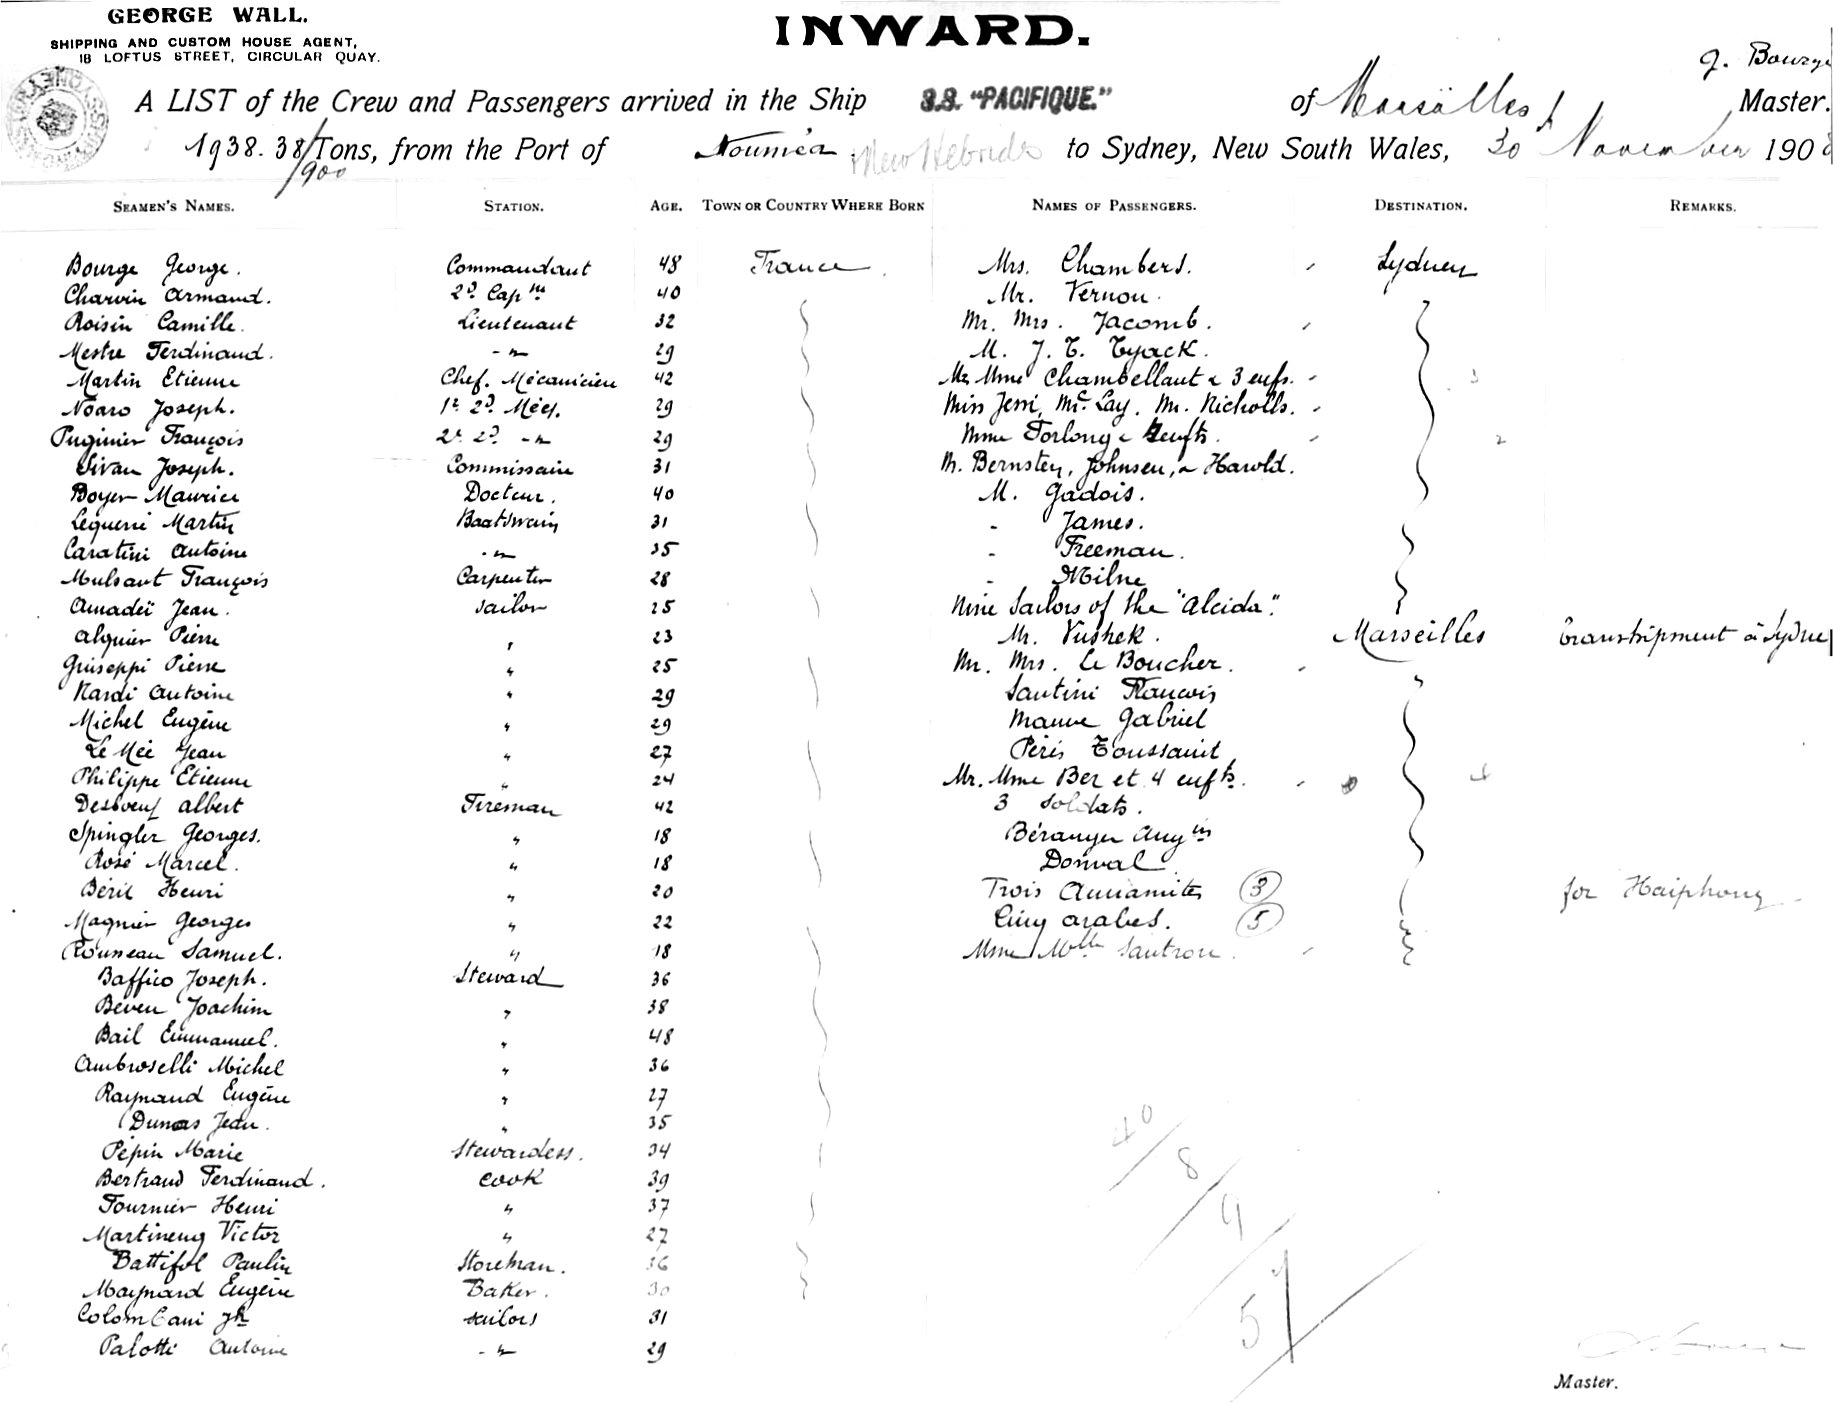 GEORGE WALL.
SHIPPING AND CUSTOM HOUSE AGENT,
18 LOFTUS STREET, CIRCULAR QUAY.
INWARD.
A LIST of the Crew and Passengers arrived in the Ship S.S. "PACIFIQUE." of Marseilles Master.
1938.38/100 Tons, from the Port of Nouméa New Hebrides to Sydney, New South Wales, 30 November 190
SEAMEN'S NAMES. STATION. AGE. TOWN OR COUNTRY WHERE BORN NAMES OF PASSENGERS. DESTINATION. REMARKS.
Bourge George. Commandant 48 France. Mrs. Chambers. Sydney
Charvin Armand. 2d. Capne 40 Mr. Vernon.
Roisin Camille. Lieutenant 32 Mr. Mrs. Jacomb.
Mestre Ferdinand. -"- 29 M. J. T. Tyack.
Martin Etienne Chef. Mécanicien 42 Mr Mme Chambellant & 3 enfs. 3
Noaro Joseph. 1r 2d. Méc. 29 Miss Jeni, Mc Lay. Mr. Nicholls.
Puginier François 2e 2d. -"- 29 Mme Forlong & 2 enfts. 2
Sivan Joseph. Commissaire 31 M. Bernsten, Johnsen, & Harold.
Boyer Maurice Docteur. 40 M. Gadois.
Lequerré Martin Boatswain 31 - James.
Caratini Antoine -"- 35 - Freeman.
Mulsant François Carpenter 28 - Milne
Amadeï Jean. sailor 25 Nine Sailors of the "Alcida".
Alquier Pierre " 23 Mr. Vushek. Marseilles transhipment à Sydney
Guiseppi Pierre " 25 Mr. Mrs. Le Boucher. "
Nardi Antoine " 29 Santini François
Michel Eugène " 29 Mauve Gabriel
Le Mée Jean " 27 Péris Toussaint
Philippe Etienne " 24 Mr. Mme Ber et 4 enfts. 4
Desboeuf Albert Fireman 42 3 soldats.
Spingler Georges. " 18 Béranger Augin
Rosé Marcel. " 18 Donval
Béril Henri " 20 Trois Annamites (3) for Haiphong
Magnier Georges " 22 Cinq arabes. (5)
Rouneau Samuel. " 18 Mme Mlle Sautron.
Baffico Joseph. Steward 36
Beven Joachim " 38
Bail Emmanuel. " 48
Ambroselli Michel " 36
Raynaud Eugène " 27
Dumas Jean. " 35
Pépin Marie Stewardess. 34
Bertrand Ferdinand. cook 39
Fournier Henri " 37
Martinenq Victor " 27
Battifol Paulin Storeman. 36
Maynard Eugène Baker. 30
Colombani Jh sailors 31
Palotti Antoine -"- 29
40
8
9
57
Master.